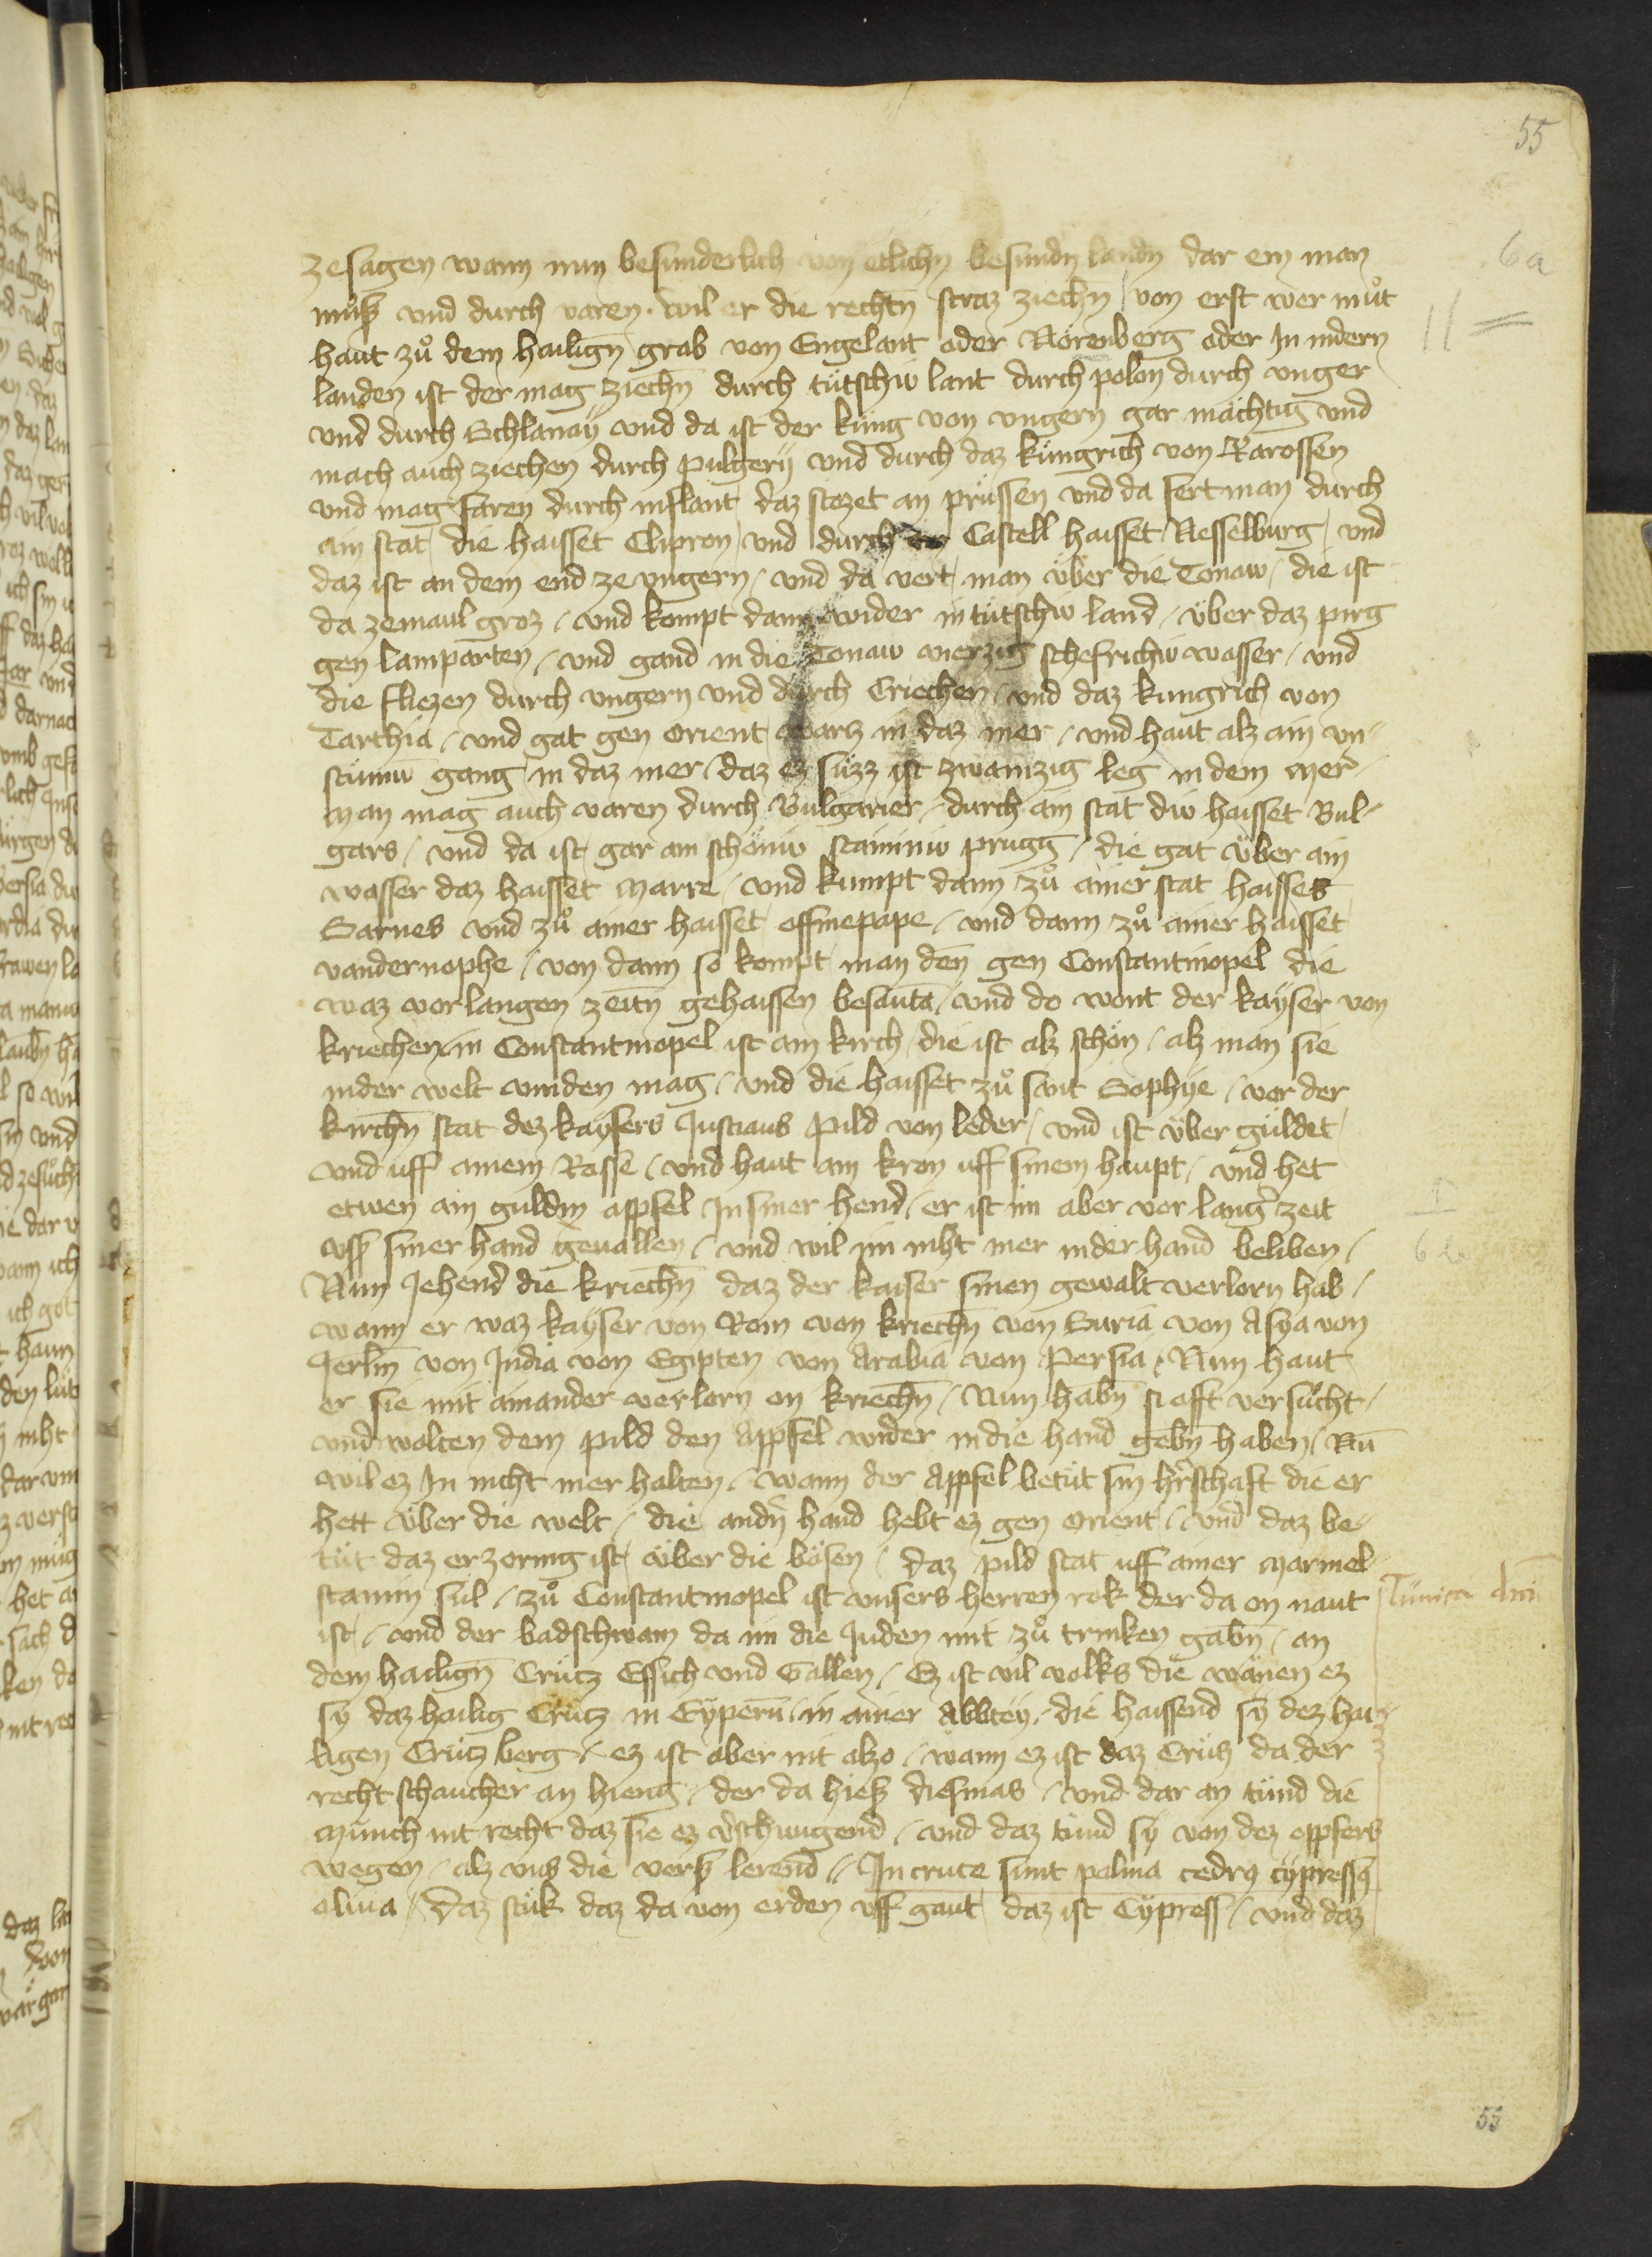 55
6a
zesagen wann nun besunderlich von etlichn besundn landn dar ein man
muͦsz vnd durch varen. wil er die rechtn̄ straz ziechn̄ / von erst wer muͦt
haut zuͦ dem hailign̄ grab von Engelant oder Nörenberg oder In indern
landen ist der mag ziechn̄ durch tütschiv lant durch polon durch vnger
vnd durch Schlanaÿ vnd da ist der küng von vngern gar mächtig vnd
mach auch ziechen durch pulgerÿ vnd durch daz küngrich von Rarossen
vnd mag faren durch inflant daz stozet an prüssen vnd da fert man durch
ain stat die haisset Clipron / vnd durch ein Castell haisset Nesselburg / vnd
daz ist an dem end ze vngern / vnd da vert man über die Tonaw / die ist
da zemaul groz / vnd kompt dann wider in tütschiv land / über daz pirg
gen lamparten / vnd gand in die Tonaw vierzig schefrichiv wasser / vnd
die fliezen durch vngern vnd durch Criechen / vnd daz kungrich von
Tarthia / vnd gat gen orient warcz in daz mer / vnd haut alz ain vn-
stümiv gang in daz mer / daz ez süzz ist zwainzig leg in dem mer /
man mag auch varen durch Bulgarier / durch ain stat div haisset Bul-
gars / vnd da ist gar ain schöniv staininiv prugg / die gat über ain
wasser daz haisset Marre / vnd kumpt dann zuͦ ainer stat haisset
Sarnes vnd zuͦ ainer haisset affinepape / vnd dann zuͦ ainer haisset
vandernophe / von dann so kompt man den gen Constantinopel die
waz vor langen zeitn̄ gehaissen besanta / vnd do wont der kaÿser von
kriechen / in Constantinopel ist ain kirch / die ist alz schön / alz man sie
inder welt vinden mag / vnd die haisset zuͦ sant Sophÿe / vor der
kirchn̄ stat dez kaÿsers Justians pild von leder / vnd ist über güldet
vnd uff ainem Rosse / vnd haut ain kron uff sinem haupt / vnd het
etwen ain guldin appfel In siner hend / er ist im aber vor langer zeit
vsz siner hand geuallen / vnd wil im niht mer inder hand beliben /
6b
Nun Jehend die kriechn̄ daz der kaiser sinen gewalt verlorn hab /
wann er waz kaÿser von Rom von kriechn̄ von Suria von Asya von
Jerlm̄ von India von Egipten von Arabia von Persia / Nun haut
er sie mit ainander verlorn on kriechn̄ / Nun habn̄ si offt versuͦcht /
vnd wolten dem pild den Appfel wider in die hand gebn̄ haben / Nū
wil ez In nicht mer halten / wann der Appfel betüt sin hr̄schaft die er
hett über die welt / die andn̄ hand hebt ez gen orient / vnd daz be-
tüt daz er zornig ist über die bösen / daz pild stat uff ainer marmel
stainin sül / zuͦ Constantinopel ist vnsers herren rok der da on naut
Tunica dni
ist / vnd der badschwam da im die Juden mit zuͦ trinken gabn̄ / an
dem hailign̄ Crütz Essich vnd Gallen / Ez ist vil volks die wänen ez
sÿ daz hailig Crütz in Cÿpern̄ / in ainer Abbtey / die haissend sÿ dez hai-
ligen Crütz berg / ez ist aber nit alzo / wann ez ist daz Crütz da der
recht schaucher an hieng / der da hiesz diesmas / vnd dar an tünd die
münch nit recht daz sie ez v̄schwigend / vnd daz tünd sÿ von dez oppfers
wegen / alz vns die versz lerend / In cruce sunt palma cedrꝰ cÿpressꝰ
oliua / daz stük daz da von erden vff gaut daz ist Cÿpress / vnd daz
55